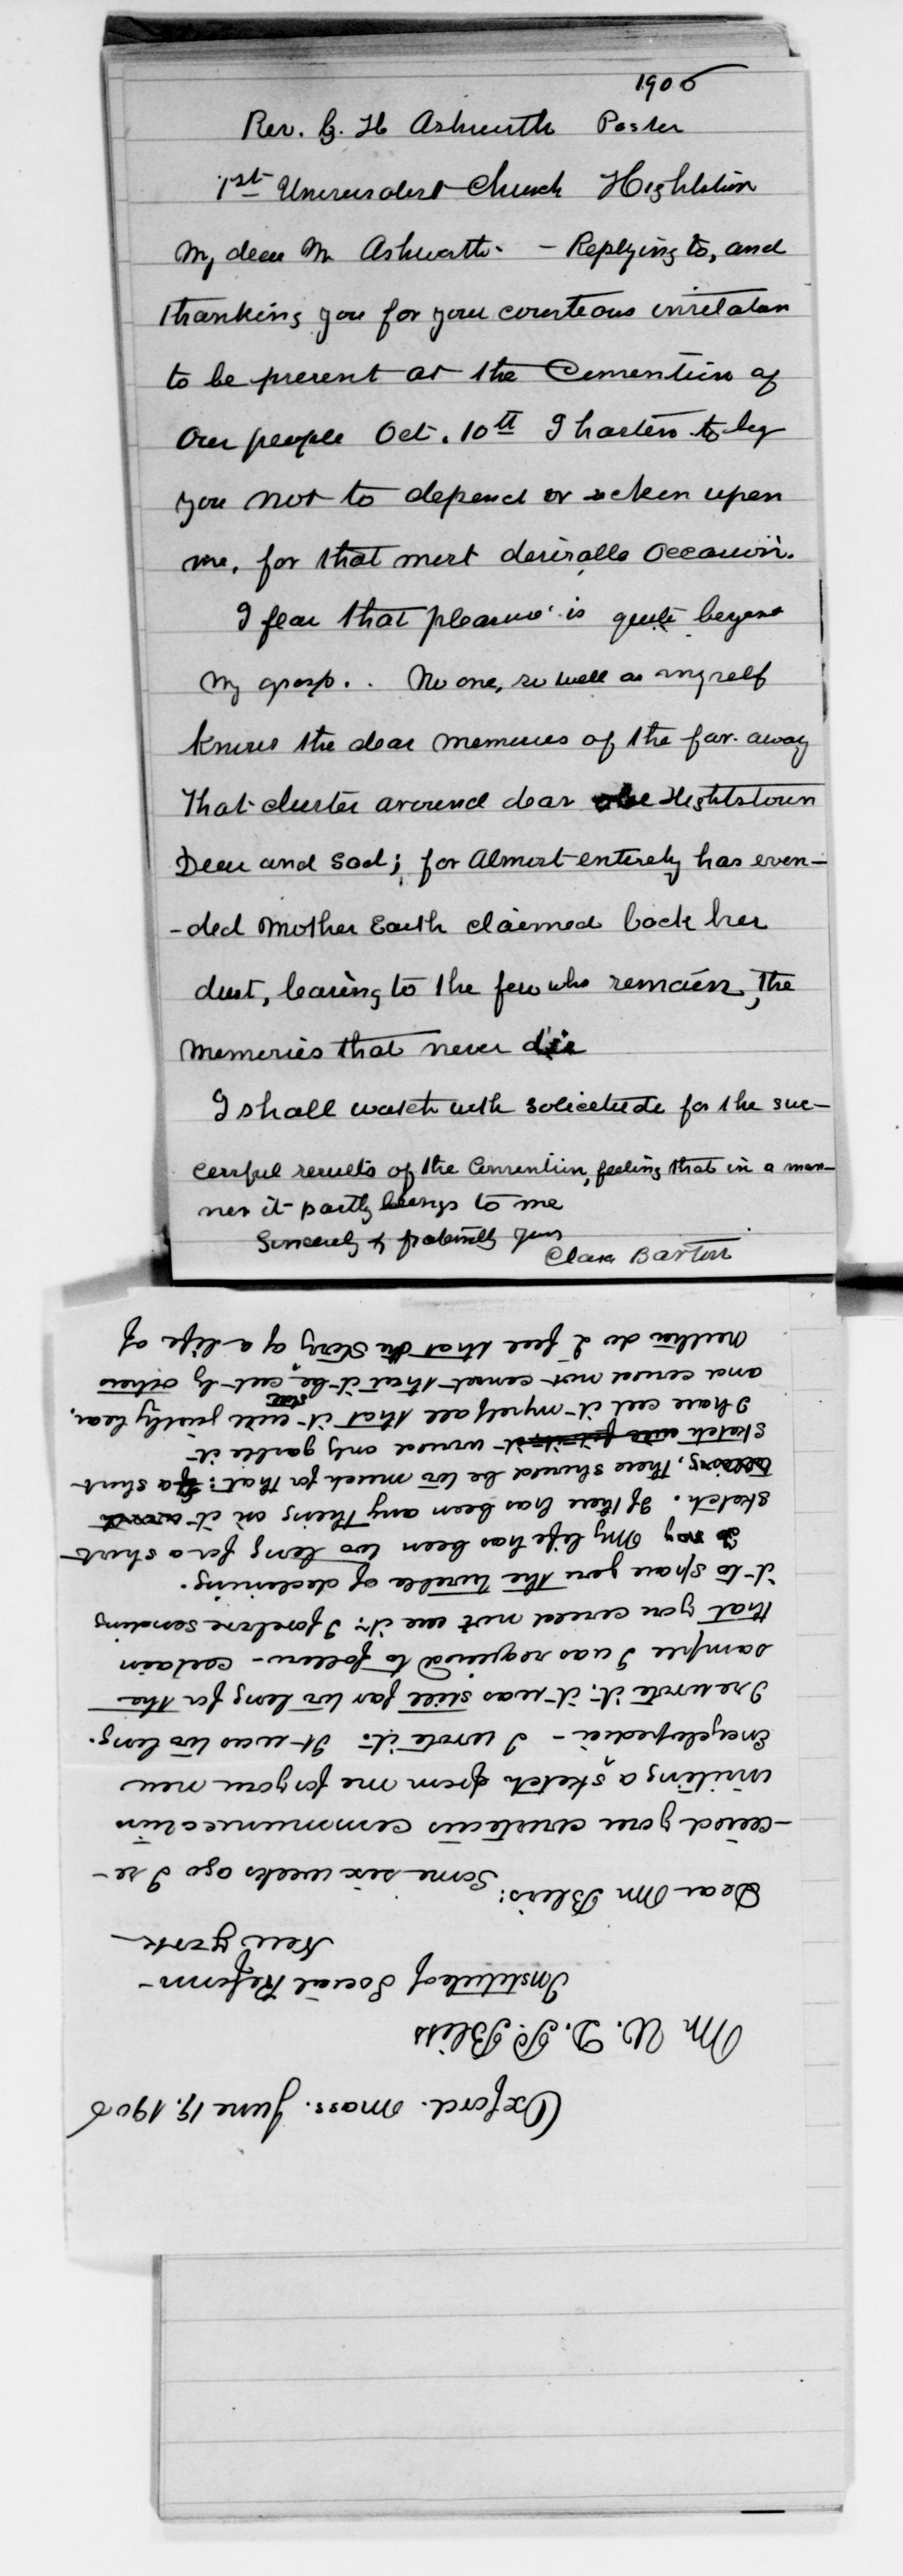 1906
Rev. G. H Ashworth Paster
1st Universalist Church Hightstown
My dear Mr Ashworth. - Replying to, and
thanking you for your courteous invitation
to be present at the Convention of
our people Oct. 10th I hasten to beg
you not to depend or reckon upon
me, for that most desirable Occasion.
I fear that pleasure is quite beyond
my grasp.. No one, so well as myself
knows the dear memories of the far-away
that cluster around dear Hightstown
Dear and sad; for Almost entirely has
-ded Mother Earth claimed back her
dust, leaving to the few who remain, the
memories that never die
I shall watch with solicitude for the suc-
cessful results of the Convention, feeling that in a man-
ner it partly belongs to me
Sincerely & fraternally yours
Clara Barton
Oxford. Mass. June 19. 1906
Mr W. D. P. Bliss
Institute of Social Reform -
New York
Dear Mr Bliss: Some six weeks ago I re-
-ceived your courteous communication
inviting a sketch from me for your new
Encyclopedia - I wrote it. It was too long.
I rewrote it. it was still far too long for the
sample I was required to follow - certain
that you could not use it. I forebore sending
it to spare you the trouble of declining.
My life has been too long for a short
sketch. If there has been any thing in it
there should be too much for that: a short
sketch would only garble it
I have cut it myself all that it will justly bear.
and could not consent that it be cut by others
Neither do I feel that the story of a life of